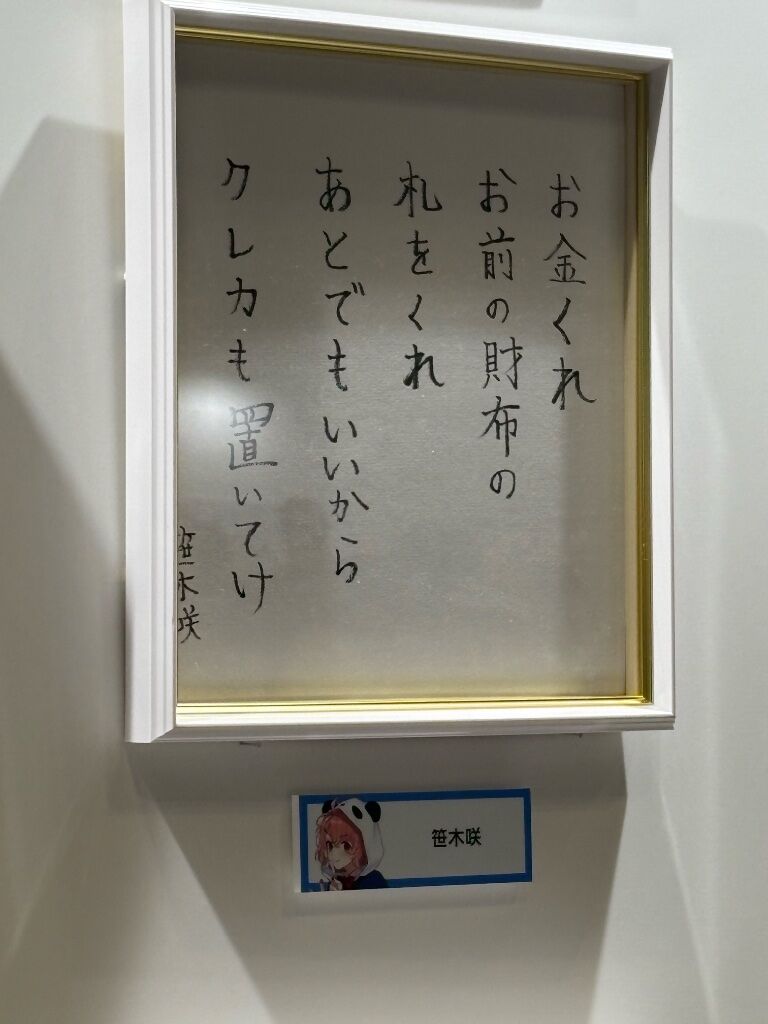 お金くれ
お前の財布の
札をくれ
あとでもいいから
クレカも置いてけ
笹木咲
笹木咲